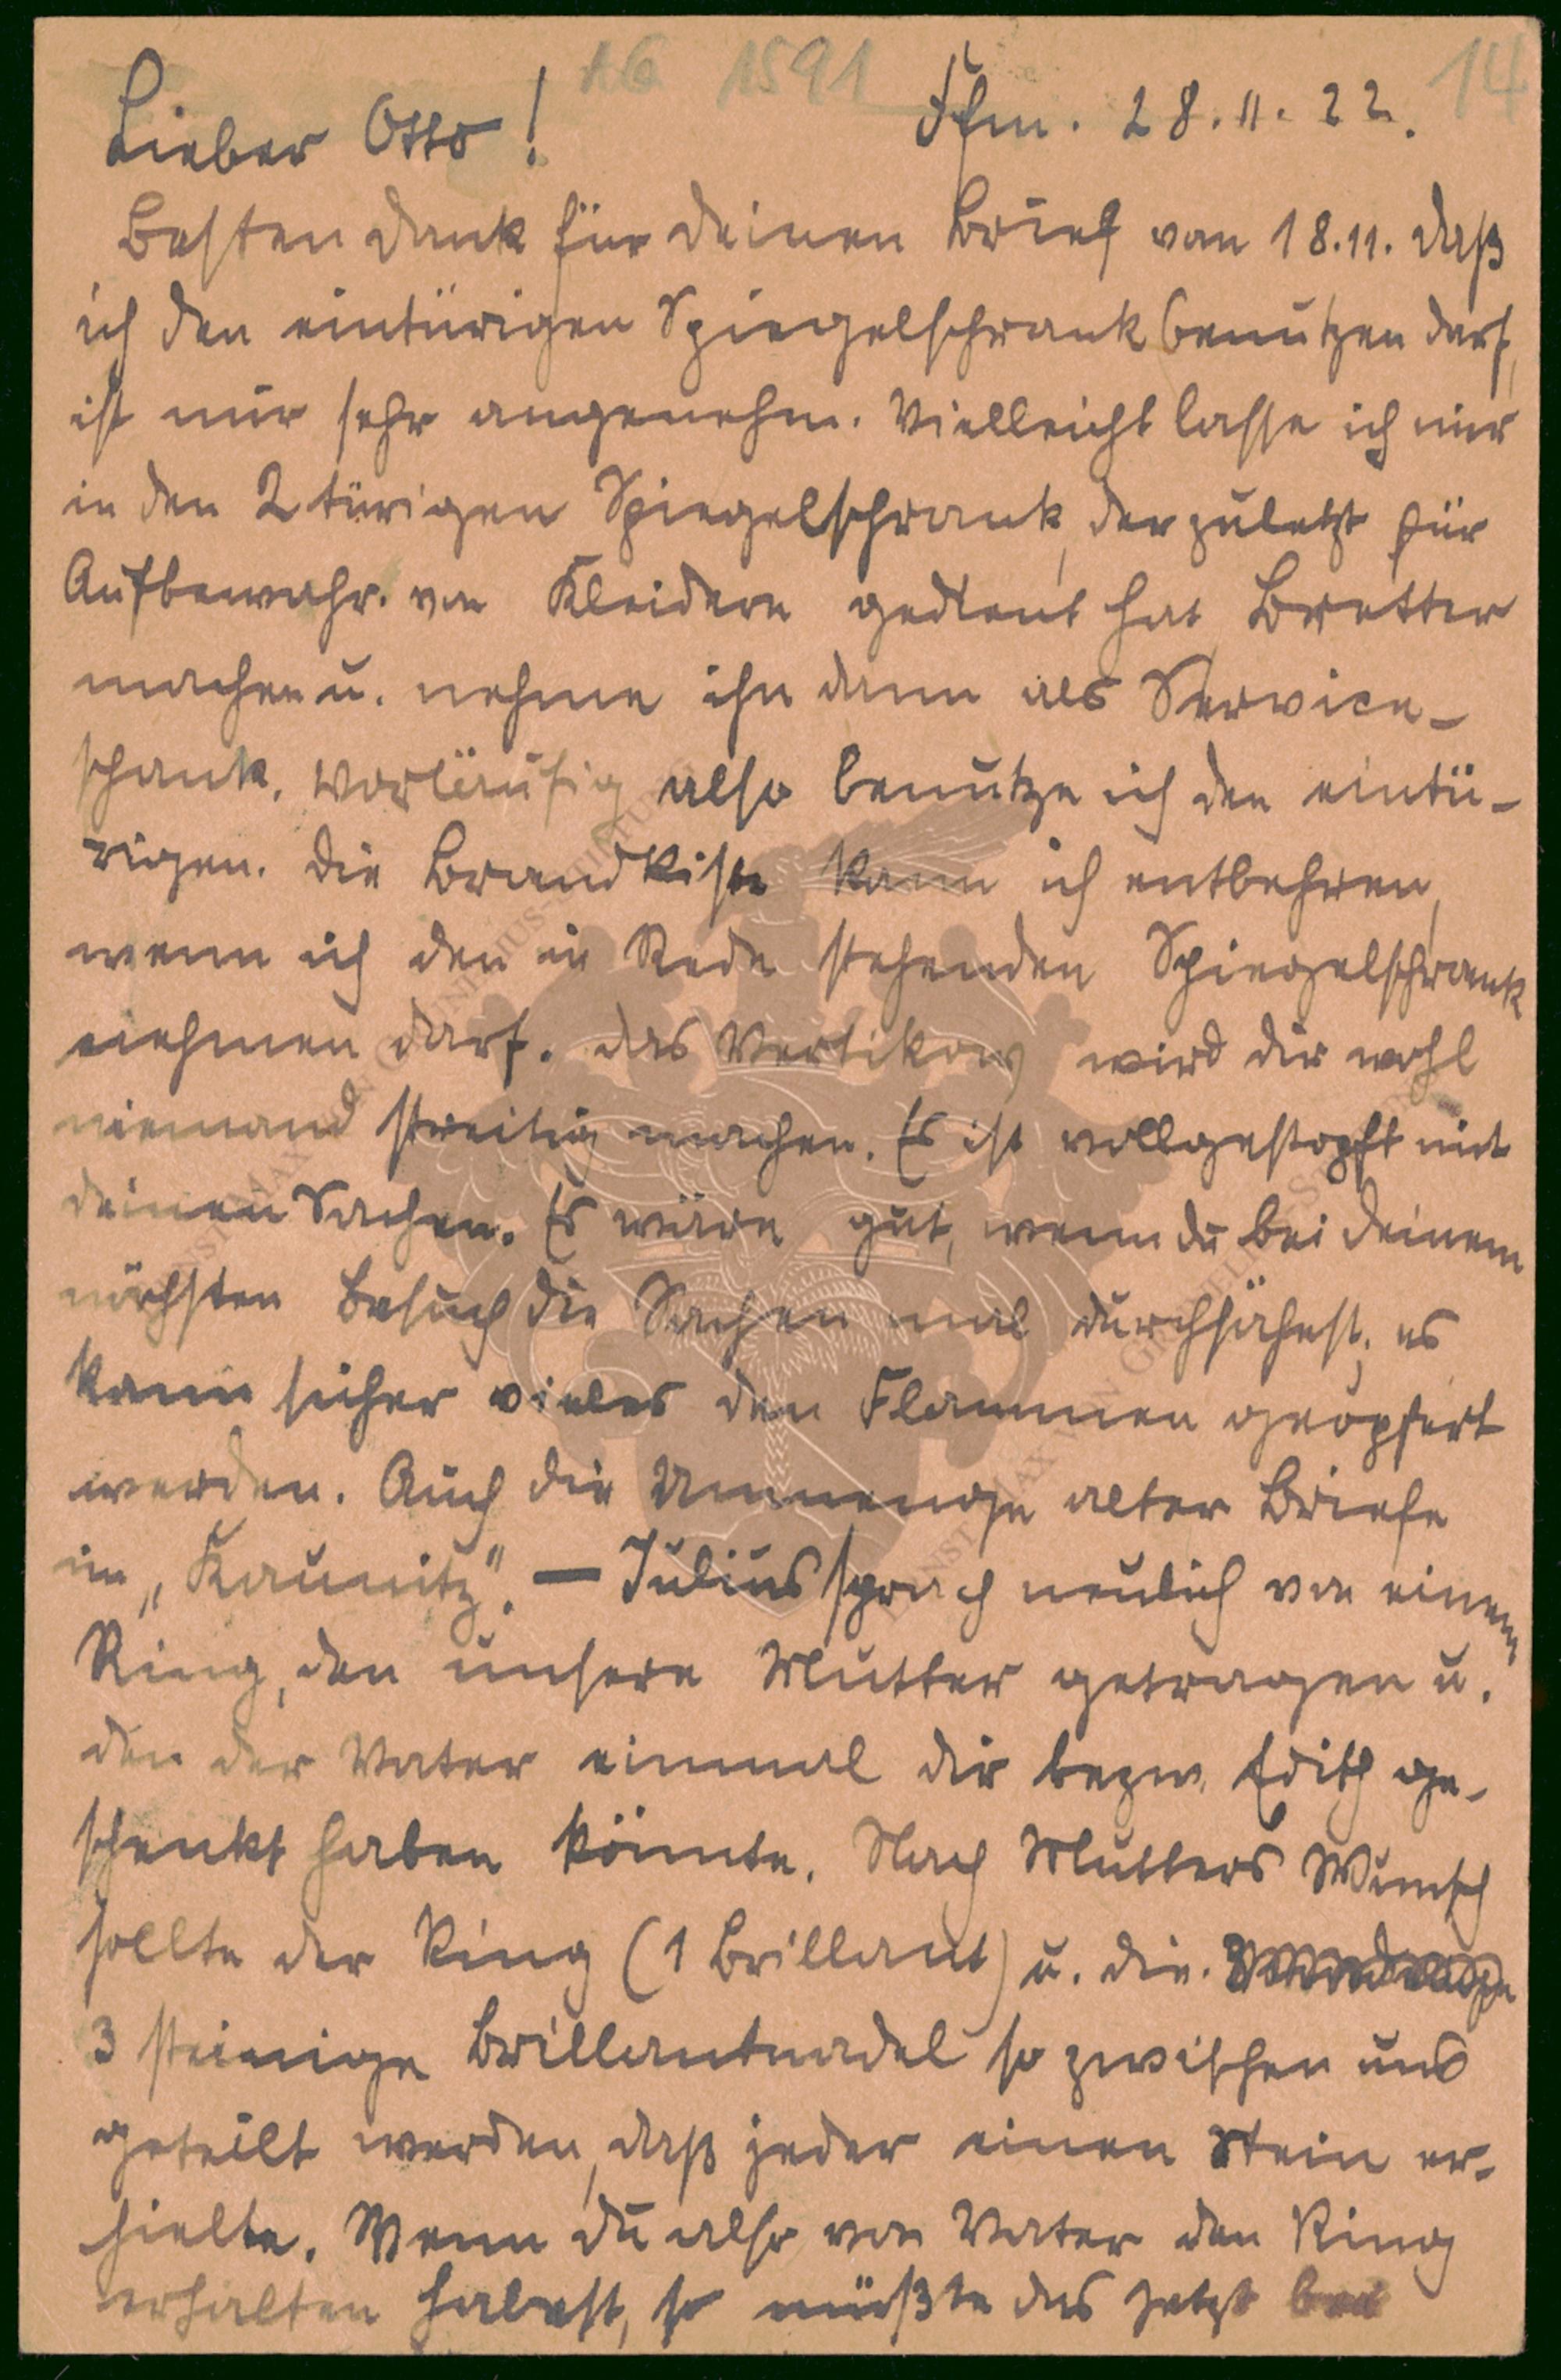 AG 1591 14
Lieber Otto! Ffm. 28.11.22.
Besten Dank für deinen Brief vom 18.11. Daß
ich den eintürigen Spiegelschrank benutzen darf,
ist mir sehr angenehm. Vielleicht lasse ich mir
in den 2 türigen Spiegelschrank, der zuletzt für
Aufbewahr. von Kleidern gedient hat Bretter
machen u. nehme ihn dann als Service-
schank. Vorläufig also benutze ich den eintü-
rigen. Die Brandkiste kann ich entbehren,
wenn ich den in Rede stehenden Spiegelschrank
nehmen darf. Das Vertikow wird dir wohl
niemand streitig machen. Es ist vollgestopft mit
deinen Sachen. Es wäre gut, wenn du bei deinem
nächsten Besuch die Sachen mal durchsähest; es
kann sicher vieles den Flammen geopfert
werden. Auch die Unmenge alter Briefe
im „Kaunitz". — Julius sprach neulich von einem
Ring, den unsere Mutter getragen u.
den der Vater einmal dir bezw. Edith ge-
schenkt haben könnte. Nach Mutters Wunsch
sollte der Ring (1 Brillant) u. die
3 steinige Brillantnadel so zwischen uns
geteilt werden, daß jeder einen Stein er-
hielte. Wenn du also von Vater den Ring
erhalten habest, so müßte das jetzt bei